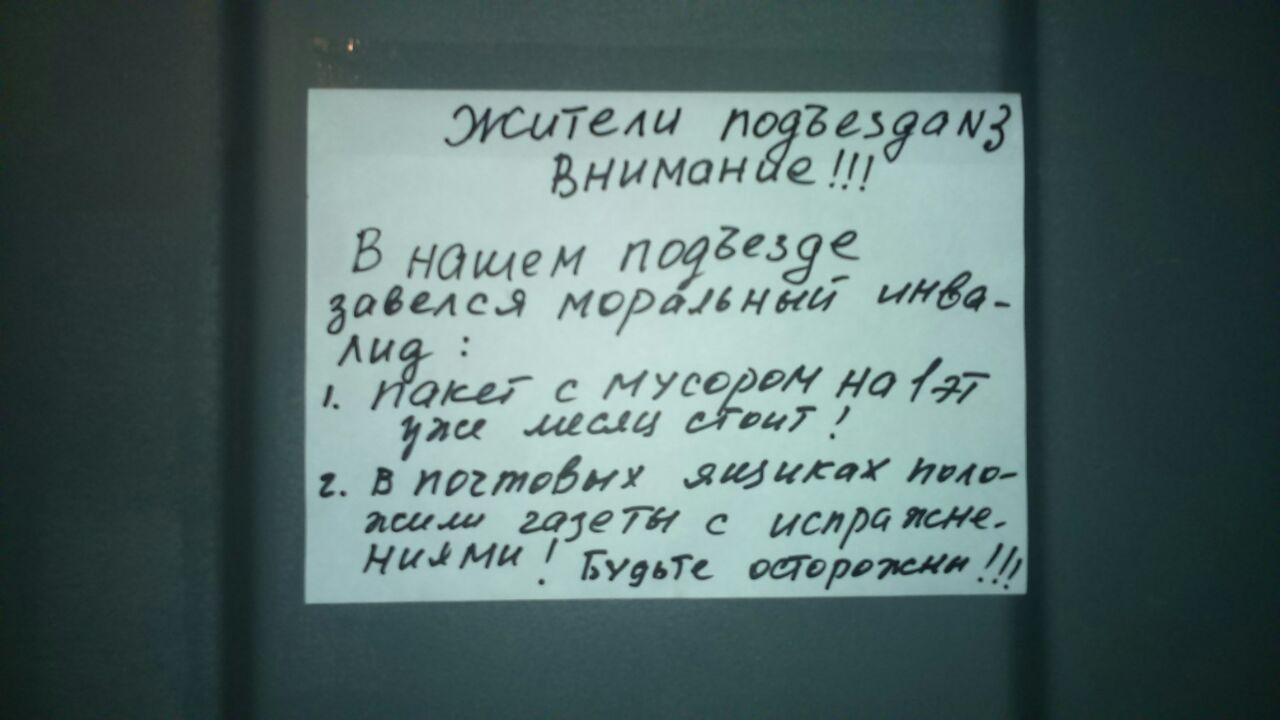 Жители подъезда N3
Внимание!!!
В нашем подъезде
завелся моральный инва-
лид :
1. пакет с мусором на 1 эт
уже месяц стоит!
2. в почтовых ящиках поло-
жили газеты с испражне-
ниями! Будьте осторожны!!!